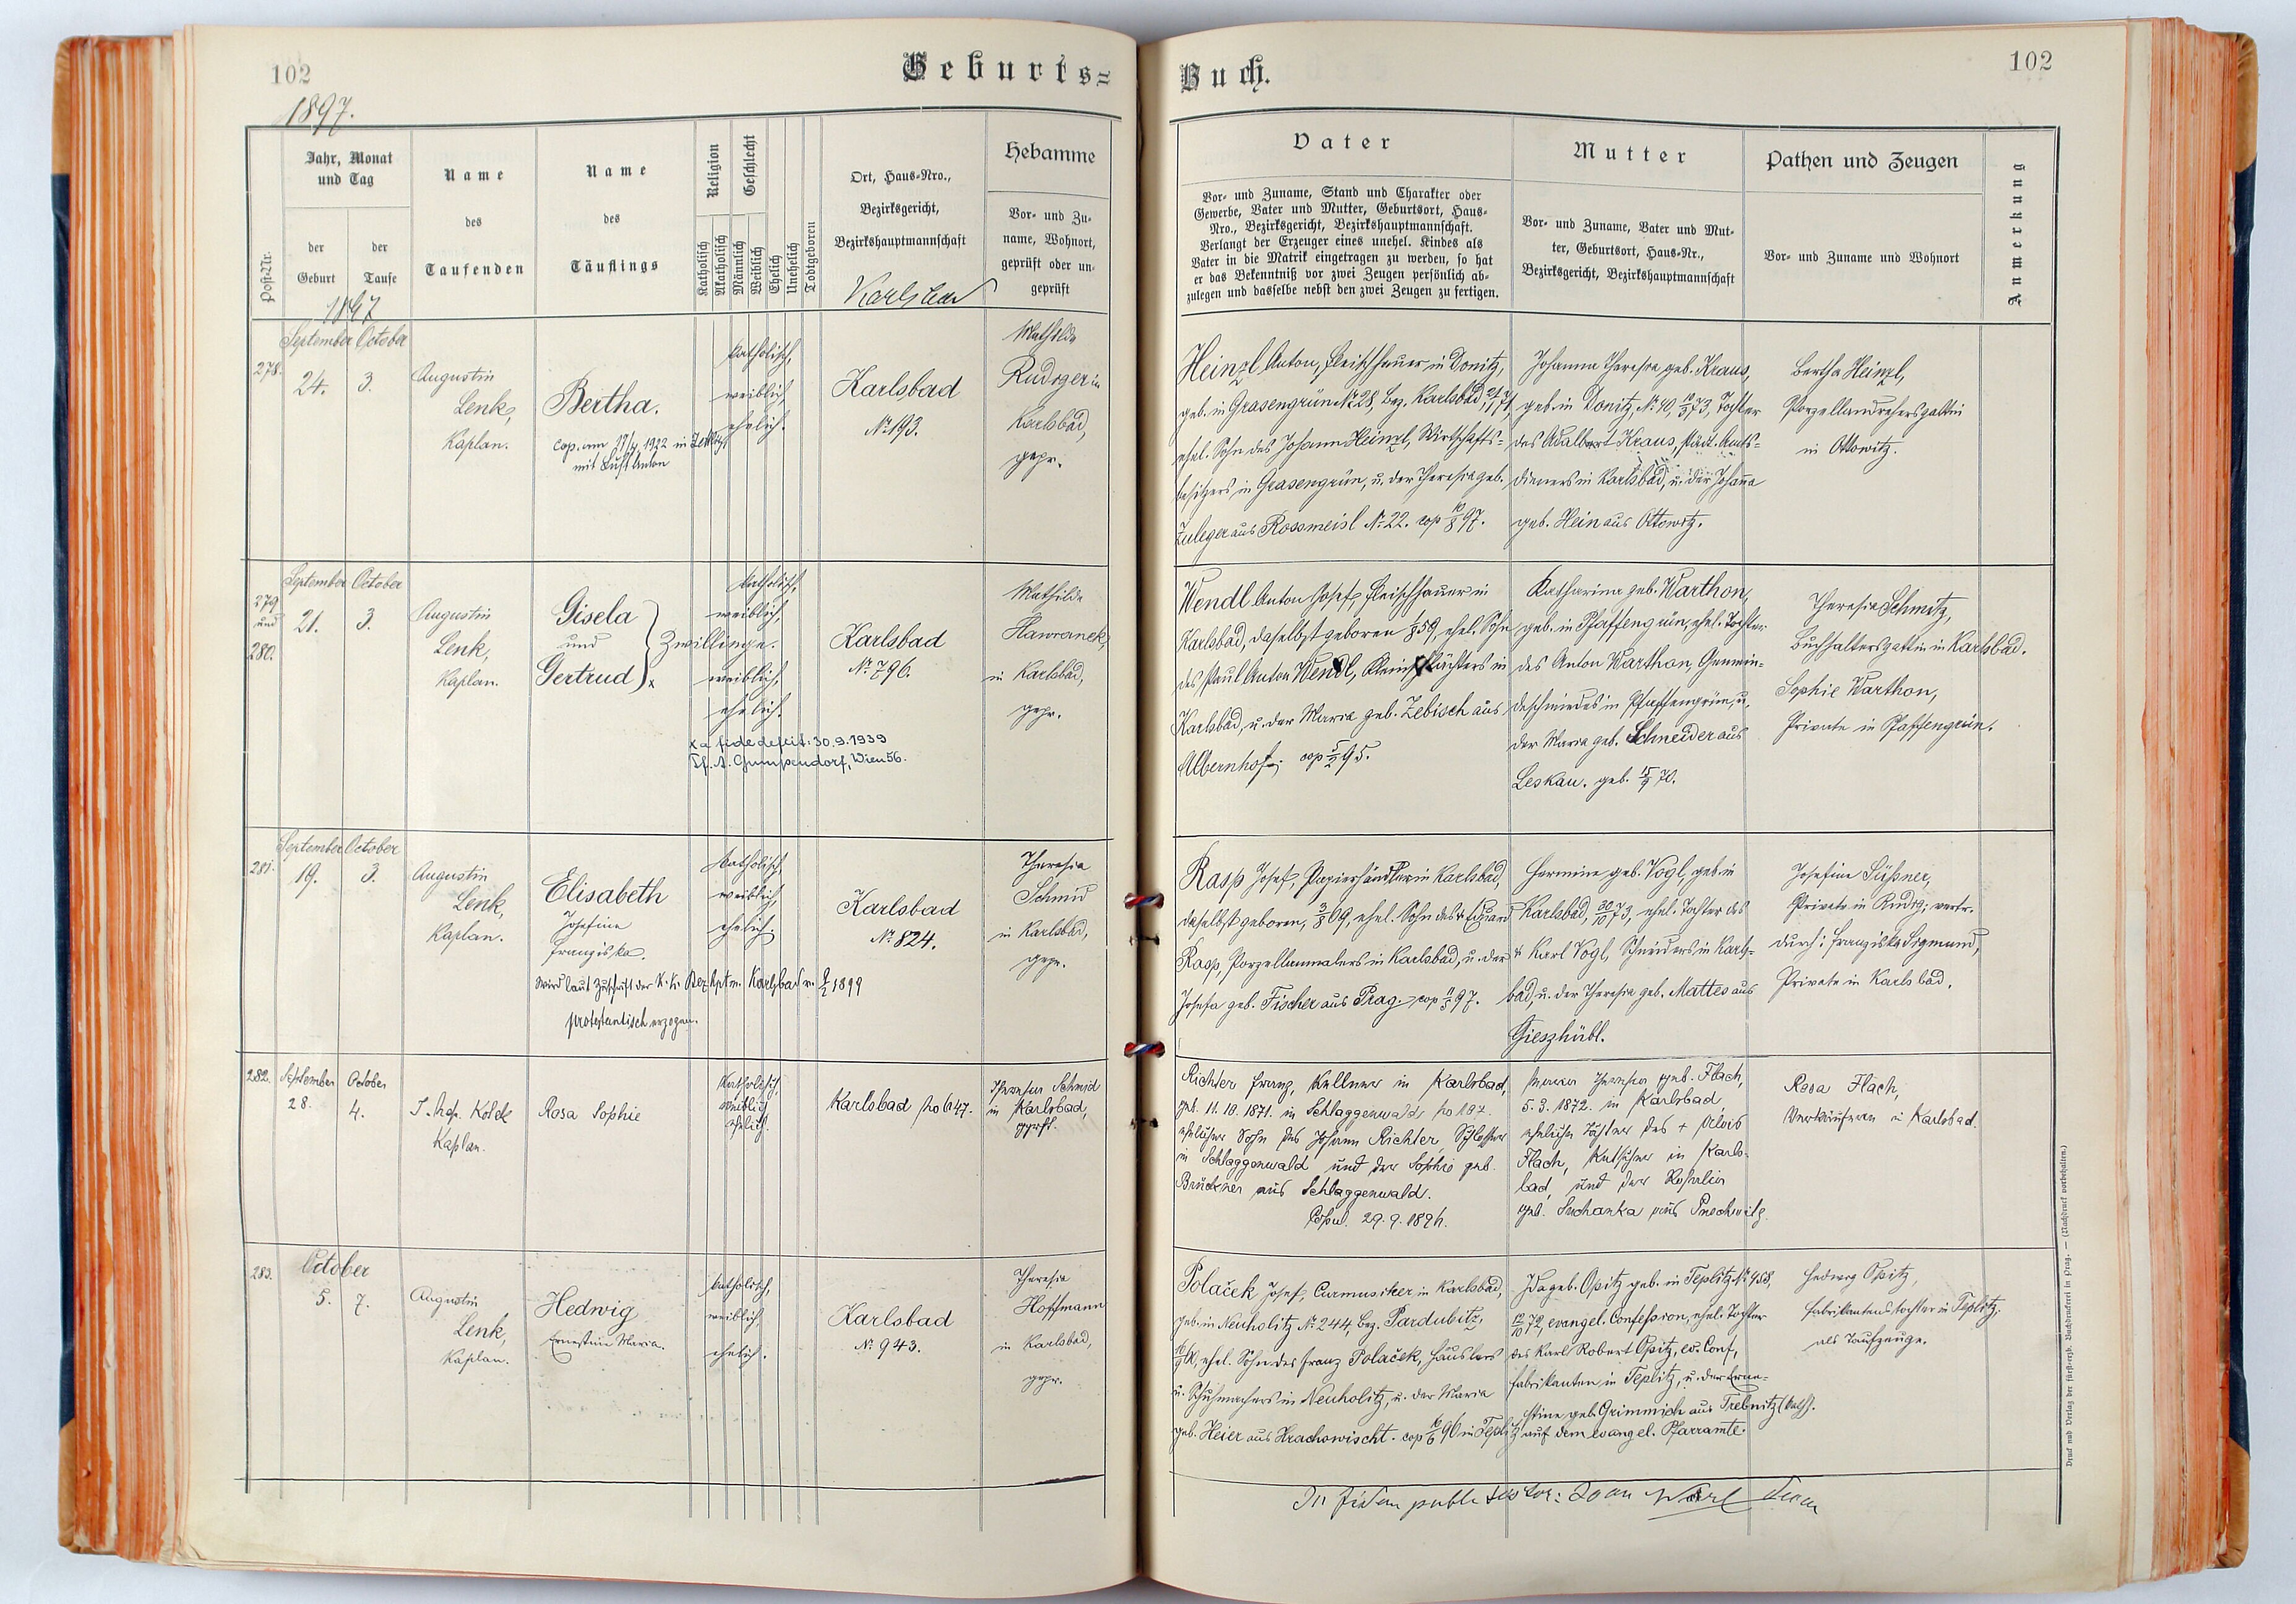 102
Geburts=
1897.
Post-Nr.
Jahr, Monat
und Tag
der
Geburt
der
Taufe
1897
Name
des
Taufenden
Name
des
Täuflings
Religion
Geschlecht
Katholisch
Akatholisch
Männlich
Weiblich
Ehelich
Unehelich
Todtgeboren
Ort, Haus-Nro.,
Bezirksgericht,
Bezirkshauptmannschaft
Karlsbad
Hebamme
Vor- und Zu-
name, Wohnort,
geprüft oder un-
geprüft
278.
September October
24. 3.
Augustin
Lenk,
Kaplan.
Bertha.
cop. am 1922 in
mit Anton
katholisch,
weiblich,
ehelich.
Karlsbad
No 193.
Mathilde
Rudiger in
Karlsbad,
gepr.
279
und
280.
September October
21. 3.
Augustin
Lenk,
Kaplan.
Gisela
und
Gertrud x
Zwillinge.
katholisch,
weiblich,
weiblich,
ehelich.
x a fide defeit: 30.9.1939
Gumpendorf, Wien 56.
Karlsbad
No 796.
Mathilde
Hawranek,
in Karlsbad,
gepr.
281.
September October
19. 3.
Augustin
Lenk,
Kaplan.
Elisabeth
Josefine
Franziska.
wird laut Zuschrift der k. k. Bez. Hptm. Karlsbad v. 1899
protestantisch erzogen.
katholisch,
weiblich,
ehelich.
Karlsbad
No 824.
Theresia
Schmid
in Karlsbad,
gepr.
282.
September October
28. 4.
Kaplan.
Rosa Sophie
Katholisch,
weiblich
ehelich.
Karlsbad No 647.
Theresia Schmid
in Karlsbad,
geprft.
283.
October
5. 7.
Augustin
Lenk,
Kaplan.
Hedwig
Ernestine Maria.
katholisch,
weiblich,
ehelich.
Karlsbad
No 943.
Theresia
Hoffmann
in Karlsbad,
gepr.
Buch.
102
Vater
Vor- und Zuname, Stand und Charakter oder
Gewerbe, Vater und Mutter, Geburtsort, Haus-
Nro., Bezirksgericht, Bezirkshauptmannschaft.
Verlangt der Erzeuger eines unehel. Kindes als
Vater in die Matrik eingetragen zu werden, so hat
er das Bekenntniß vor zwei Zeugen persönlich ab-
zulegen und dasselbe nebst den zwei Zeugen zu fertigen.
Mutter
Vor- und Zuname, Vater und Mut-
ter, Geburtsort, Haus-Nr.,
Bezirksgericht, Bezirkshauptmannschaft
Pathen und Zeugen
Vor- und Zuname und Wohnort
Anmerkung
Heinzl Anton, Fleischhauer in Donitz,
geb. in Grasengrün No 28, Bez. Karlsbad,
ehel. Sohn des Johann Heinzl, Wirtschafts=
besitzers in Grasengrün, u. der Theresia geb.
Zuleger aus Rossmeisl No 22. cop 10/8 97.
Johanna Theresia geb. Kraus,
geb. in Donitz, No 40, 10/3 73, Tochter
des Adalbert Kraus, städt. Amts=
dieners in Karlsbad, u. der Johanna
geb. Hein aus Ottowitz.
Bertha Heinzl,
Porzellandrehersgattin
in Ottowitz.
Wendl Anton Josef, Fleischhauer in
Karlsbad, daselbst geboren 59, ehel. Sohn
des Paul Anton Wendl, in
Karlsbad, u. der Maria geb. Zebisch aus
Albernhof; cop 5/2 95.
Katharina geb. Warthon,
geb. in Pfaffengrün, ehel. Tochter
des Anton Warthon, Gemein=
deschmiedes in Pfaffengrün, u.
der Maria geb. Schneider aus
Leskau. geb. 15/9 70.
Theresia Schmitz,
Buchhaltersgattin in Karlsbad.
Sophie Warthon,
Private in Pfaffengrün.
Rasp Josef, Papierhändler in Karlsbad,
daselbst geboren, 3/8 69, ehel. Sohn des + Eduard
Rasp, Porzellanmalers in Karlsbad, u. der
Josefa geb. Fischer aus Prag. cop 97.
Hermine geb. Vogl, geb. in
Karlsbad, 30/10 73, ehel. Tochter des
+ Karl Vogl, Schneiders in Karls=
bad, u. der Theresia geb. Mattes aus
Gieszhübl.
Josefine Süßner,
Private in Rudig; vertr.
durch: Franziska Sigmund,
Private in Karlsbad.
Richter Franz, Kellner in Karlsbad,
geb. 11.10.1871. in Schlaggenwald No 187.
ehelicher Sohn des Johann Richter, Schlosser
in Schlaggenwald und der Sophie geb.
Brückner aus Schlaggenwald.
Copul. 29.9.1896.
Maria Theresia geb. Flach,
5.3.1872. in Karlsbad
eheliche Tochter des + Alois
Flach, Kutscher in Karls-
bad, und der Rosalia
geb. Suchanka aus
Rosa Flach,
Verkäuferin in Karlsbad.
Polaček Josef, Curmusiker in Karlsbad,
geb. in Neuholitz No 244, Bez. Pardubitz,
ehel. Sohn des Franz Polaček, Häuslers
u. Schuhmachers in Neuholitz, u. der Maria
geb. Heier aus Hrachowischt. cop 16/6 96 in Teplitz auf dem evangel. Pfarramte.
Ida geb. Opitz geb. in Teplitz No 458,
12/10 72, evangel. Confession, ehel. Tochter
des Karl Robert Opitz, ev. Conf,
Fabrikanten in Teplitz, u. der Erne=
stine geb. Grimmich aus Trebnitz (kath).
Hedwig Opitz,
Fabrikantenstochter in Teplitz,
als Taufzeuge.
In fidem publ.
Druck und Verlag der fürst-erzb. Buchdruckerei in Prag. — (Nachdruck vorbehalten.)